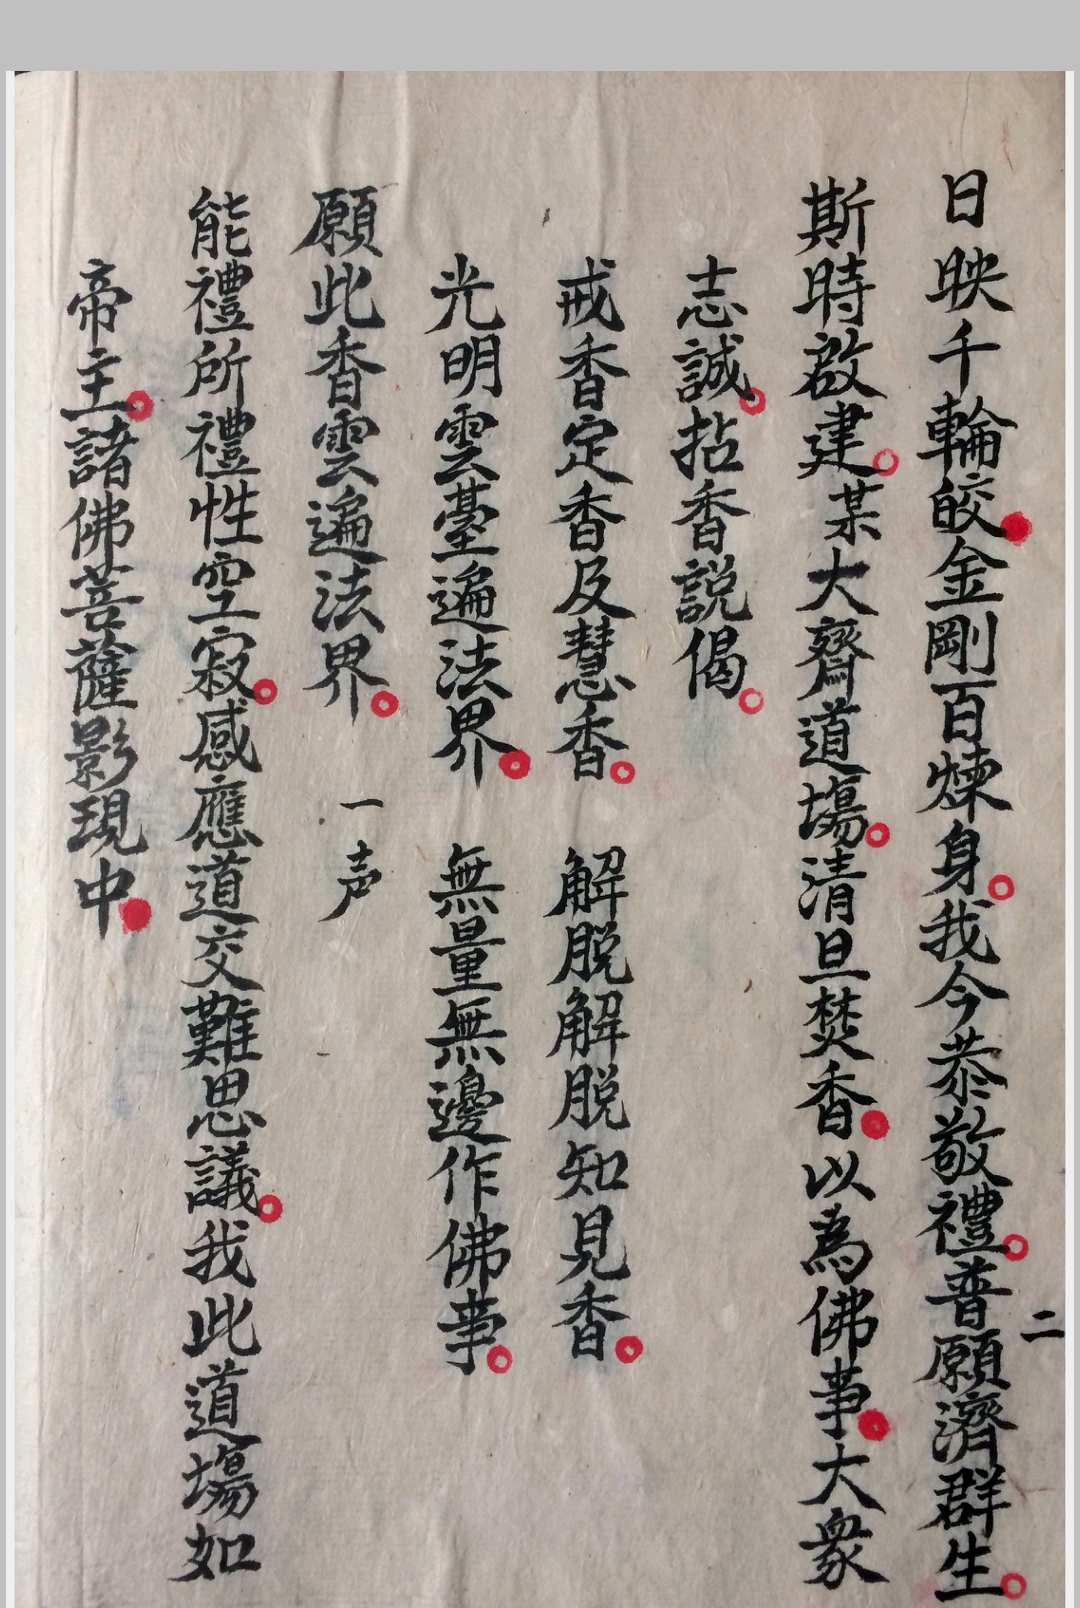 日映千輪皎金剛百煉身我今恭敬禮普願濟群生
二
斯時啟建某大齋道場清旦焚香以為佛事大眾
志誠拈香説偈
戒香定香及慧香 解脱解脱知見香
光明雲臺遍法界 無量無邊作佛事
願此香雲遍法界 一声
能禮所禮性空寂感應道交難思議我此道場如
帝主諸佛菩薩影現中